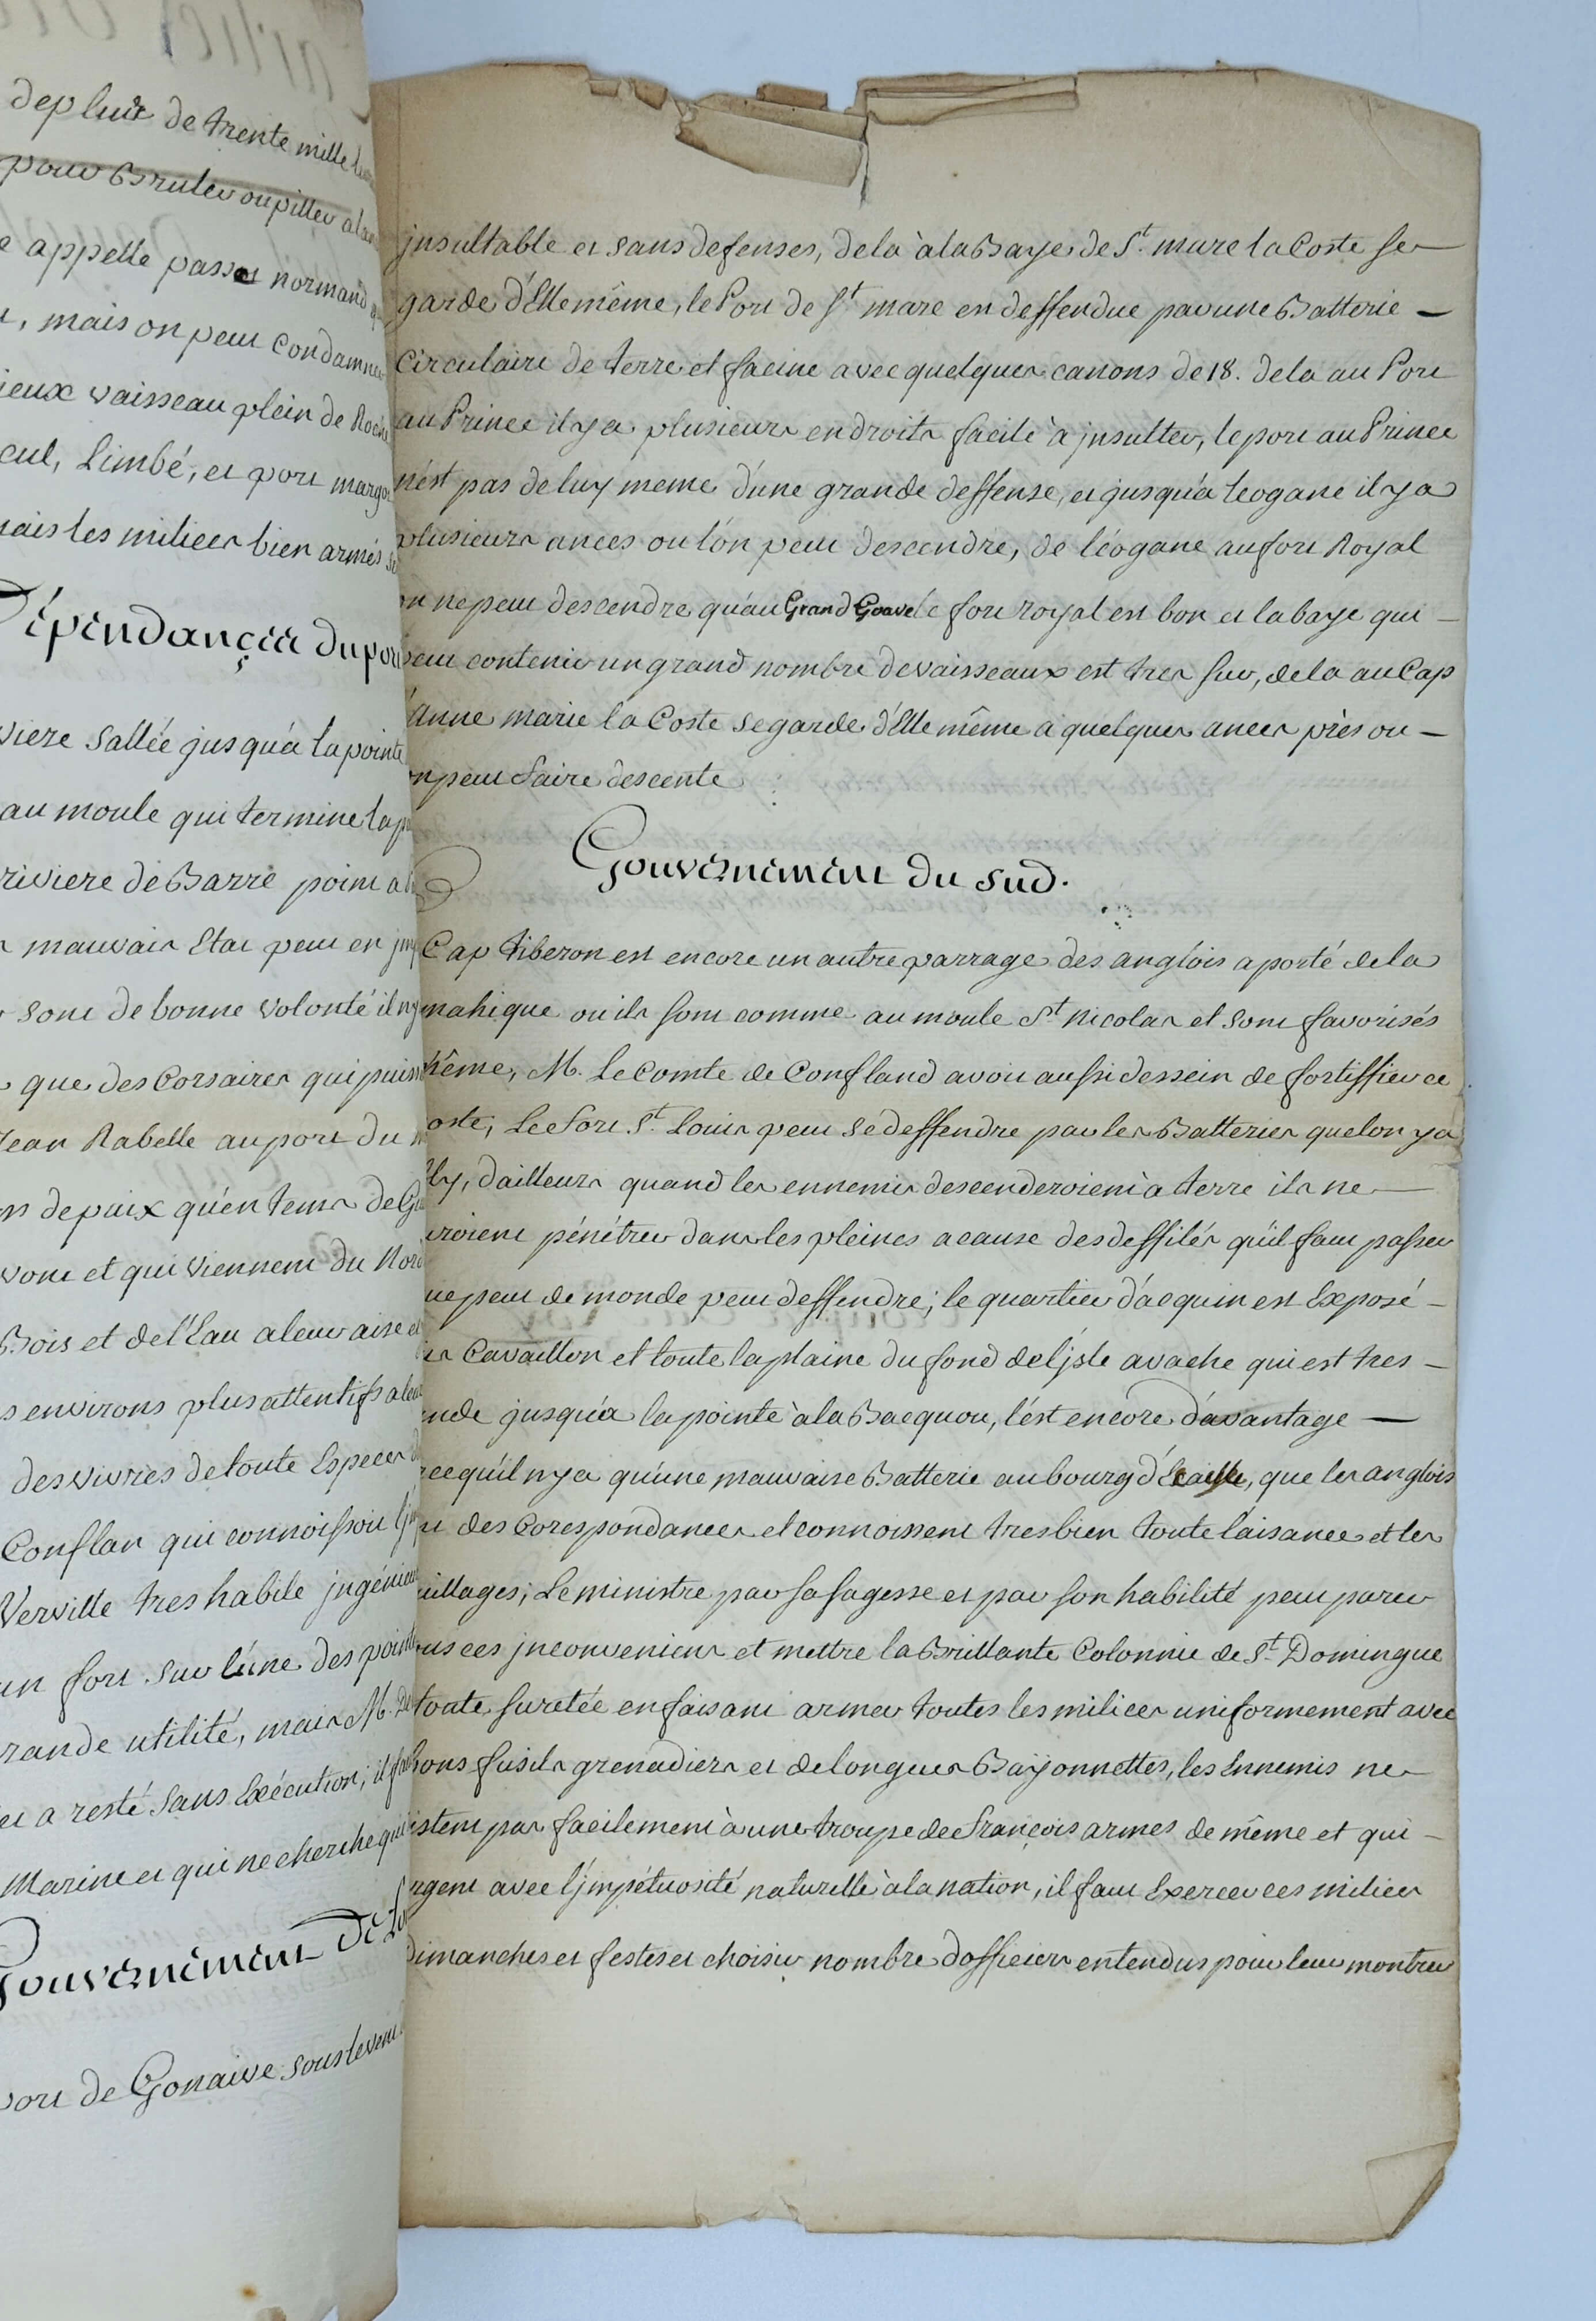 deplus de trente mille
pour Bruler ou piller
appelle passe normand
, mais on peut Condamner
ieux vaisseau plein de Roche
cul, Limbé, et port margot
mais les milices bien armés
Dépendances du port
viere Sallée jusqu'à la pointe
au moule qui termine la
riviere de Barre point
mauvais Etat peut en
sont de bonne volonté il ny
que des Corsaires qui puissent
Jean Rabelle au port du
depaix qu'en tems de
vont et qui viennent du Nord
Bois et de l'Eau a leur aise et
s environs plus attentifs a
des vivres de toute Especes
Conflan qui connoissoit
Verville tres habile jngénieur
un fort sur l'une des pointes
rande utilité, mais M. De
et a resté sans Exécution; il
Marine et qui ne cherche qui
Gouvernement De
port de Gonaive sous le vent
jnsultable et sans defenses, de la à la Baye de St. marc la Coste se
garde d'Elle même, le Port de St marc en deffendue par une Batterie
Circulaire de terre et facine avec quelques canons de 18. de la au Port
au Prince il y a plusieurs endroits facile à jnsulter, le port au Prince
n'est pas de luy meme d'une grande deffense, et jusqu'a leogane il y a
plusieurs ances ou l'on peut descendre, de léogane au fort Royal
on ne peut descendre qu'au Grand Goave le fort royal est bon et la baye qui
peut contenir un grand nombre de vaisseaux est tres sur, de la au Cap
d'Anne marie la Coste se garde d'Elle même a quelques ances près ou
on peut faire descente
Gouvernement du Sud.
Cap tiberon est encore un autre parrage des anglois a porté de la
mahique ou ils sont comme au moule St nicolas et sont favorisés
même, M. Le Comte de Confland avoit aussi dessein de fortiffier ce
oste, Le fort St. Louis peut se deffendre par les Batteries que l'on y a
ly, d'ailleurs quand les ennemis descenderoient à terre ils ne
roient pénétrer dans les pleines a cause des deffilés qu'il faut passer
ue peut de monde peut deffendre; le quartier d'acquin est Exposé
Cavaillon et toute la plaine du fond de l'jsle avache qui est tres
nde jusqu'a la pointe à la Bacquou, l'est encore d'avantage
rce qu'il ny a qu'une mauvaise Batterie au bourg d'Ecaille, que les anglois
des Corespondances et connoissent tres bien toute l'aisance et les
uillages; Le ministre par sa sagesse et par son habilité peut parer
ous ces jnconveniens et mettre la Brillante Colonnie de St. Domingue
toute suretée en faisant armer toutes les milices uniformement avec
bons fusils grenadiers et de longues Bayonnettes, les Ennemis ne
istent pas facilement à une troupe de francois armes de même et qui
rgent avec l'jmpétuosité naturelle à la nation, il faut Exercer ces milices
Dimanches et festes et choisir nombre d'officiers entendus pour leur montrer